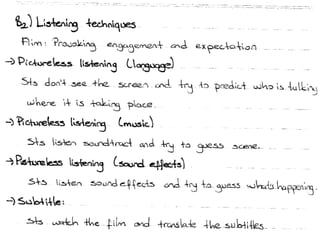 B2) Listening techniques
Aim: Provoking engagement and expectation
→ Pictureless listening (language)
Sts don't see the screen and try to predict who is talking
where it is taking place.
→ Pictureless listening (music)
Sts listen soundtract and try to guess scene.
→ Pictureless listening (sound effects)
Sts listen sound effects and try to guess what's happening.
→ Subtitle:
Sts watch the film and translate the subtitles.